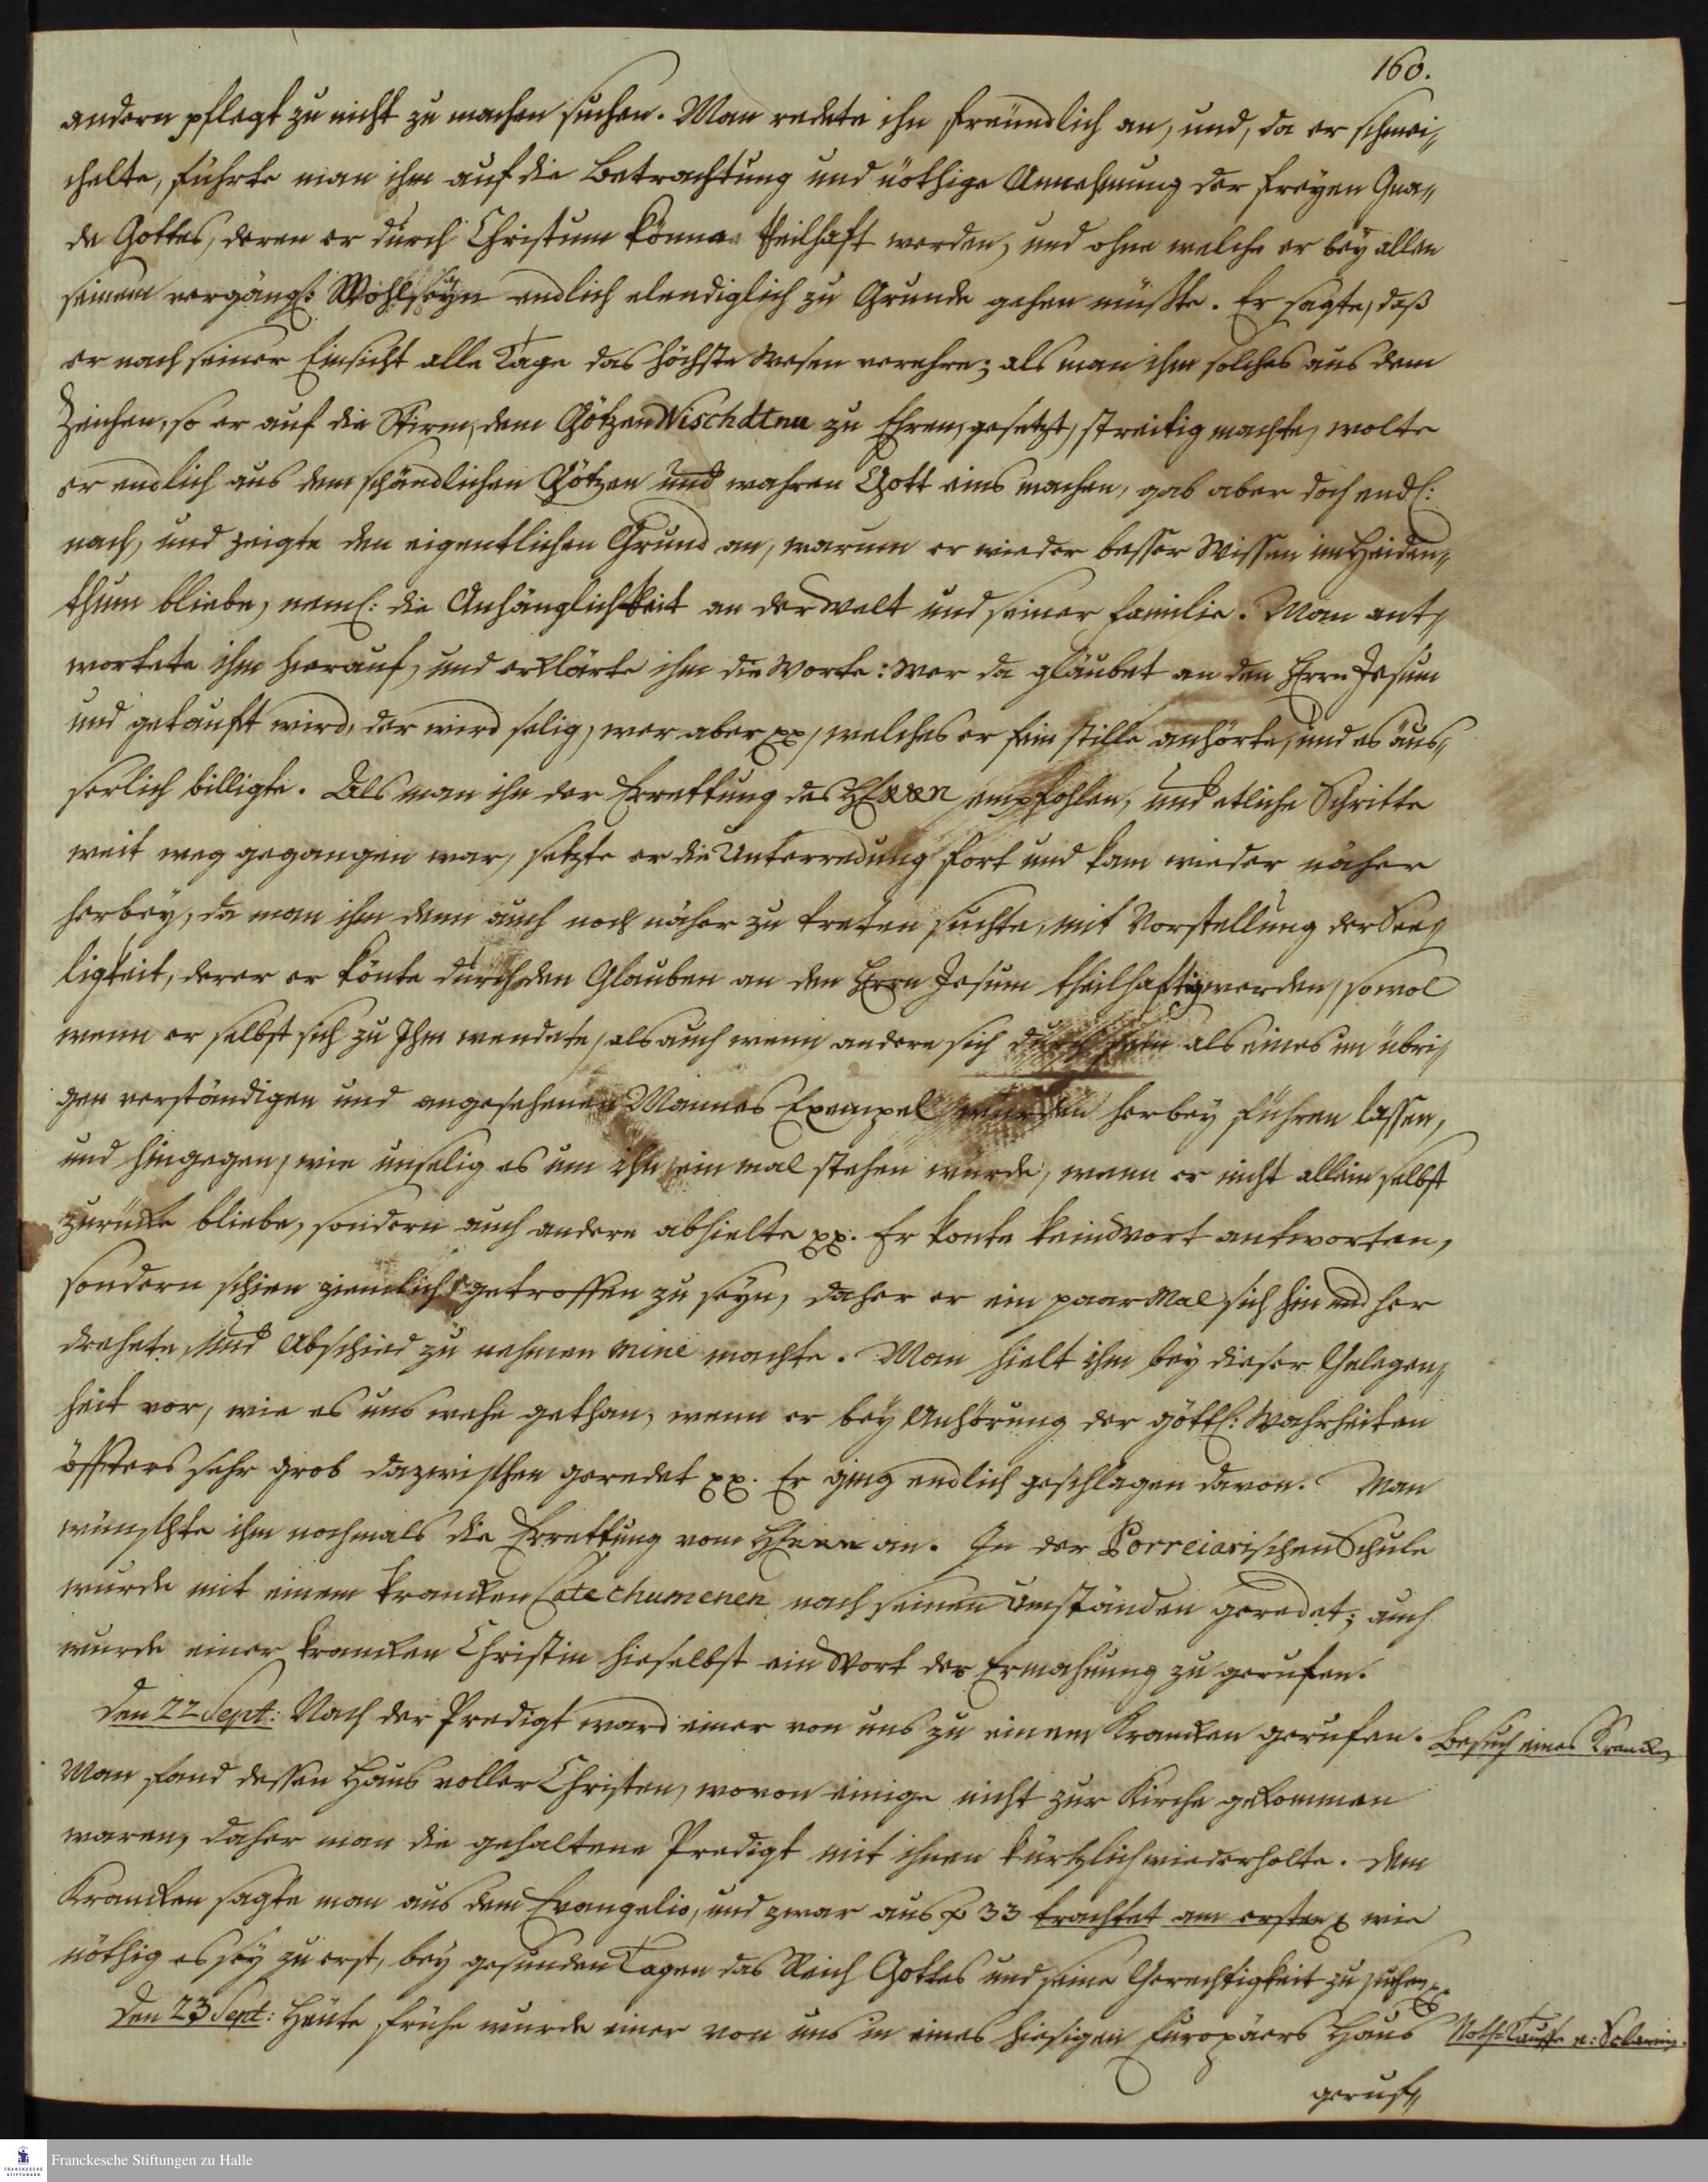 160.
andern pflegt zu nicht zu machen suchen. Man redete ihn freündlich an, und, da er schmei„
chelte, führte man ihn auf die Betrachtung und nöthige Annehmung der freyen Gna„
de Gottes, deren er durch Christum könne theilhaft werden, und ohne welche er bey allen
seinem vergängl: Wohlseyn endlich elendiglich zu Grunde gehen müßte. Er sagte, daß
er nach seiner Einsicht alle Tage das höchste Wesen verehre; als man ihm solches aus dem
Zeichen, so er auf die Stirn, dem Götzen Wischdtnu zu Ehren, gesetzt, streitig machte, wolte
er endlich aus dem schändlichen Götzen und wahren Gott eins machen, gab aber doch endl:
nach, und zeigte den eigentlichen Grund an, warum er wieder besser Wissen im Heiden„
thum bliebe, neml: die Anhänglichkeit an der Welt und seiner Familie. Man ant„
wortete ihm hierauf, und erklärte ihm die Worte: Wer da gläubet an den Herrn Jesum
und getauft wird, der wird selig, wer aber pp, welches er fein stille anhörte, und es äus„
serlich billigte. Als man ihn der Errettung des HErrn empfohlen, und etliche Schritte
weit weg gegangen war, setzte er die Unterredung fort und kam wieder näher
herbey, da man ihm denn auch noch näher zu treten suchte, mit Vorstellung der See„
ligkeit, derer er könte durch den Glauben an den Herrn Jesum theilhaftig werden, sowol
wenn er selbst sich zu Ihm wendete, als auch wenn andere sich durch sein als eines im übri„
gen verständigen und angesehenen Mannes Exempel würden herbey führen lassen,
und hingegen, wie unselig es um ihn einmal stehen würde, wenn er nicht allein selbst
zurücke bliebe, sondern auch andere abhielte pp. Er konte kein Wort antworten,
sondern schien ziemlich getroffen zu seyn, daher er ein paar Mal sich hin und her
drehete, und Abschied zu nehmen mine machte. Man hielt ihm bey dieser Gelegen„
heit vor, wie es uns wehe gethan, wenn er bey Anhörung der göttl: Wahrheiten
öffters sehr grob dazwischen geredet pp. Er ging endlich geschlagen davon. Man
wünschte ihm nochmals die Errettung vom HErrn an. In der Porreiarischen Schule
wurde mit einem krancken Catechumenen nach seinen Umständen geredet; auch
wurde einer krancken Christin hieselbst ein Wort der Ermahnung zu gerufen.
Den 22 Sept: Nach der Predigt ward einer von uns zu einem Krancken gerufen.
Besuch eines Krancken
Man fand dessen Haus voller Christen, wovon einige nicht zur Kirche gekommen
waren, daher man die gehaltene Predigt mit ihnen kürtzlich wiederholte. Dem
Krancken sagte man aus dem Evangelio, und zwar aus 33 trachtet am ersten p wie
nöthig es sey zu erst, bey gesunden Tagen das Reich Gottes und seine Gerechtigkeit zu suchen pp
Den 23 Sept: Heute frühe wurde einer von uns in eines hiesigen Europäers Haus
Noth-Tauffe e: Sclavin.
geruf„
Franckesche Stiftungen zu Halle